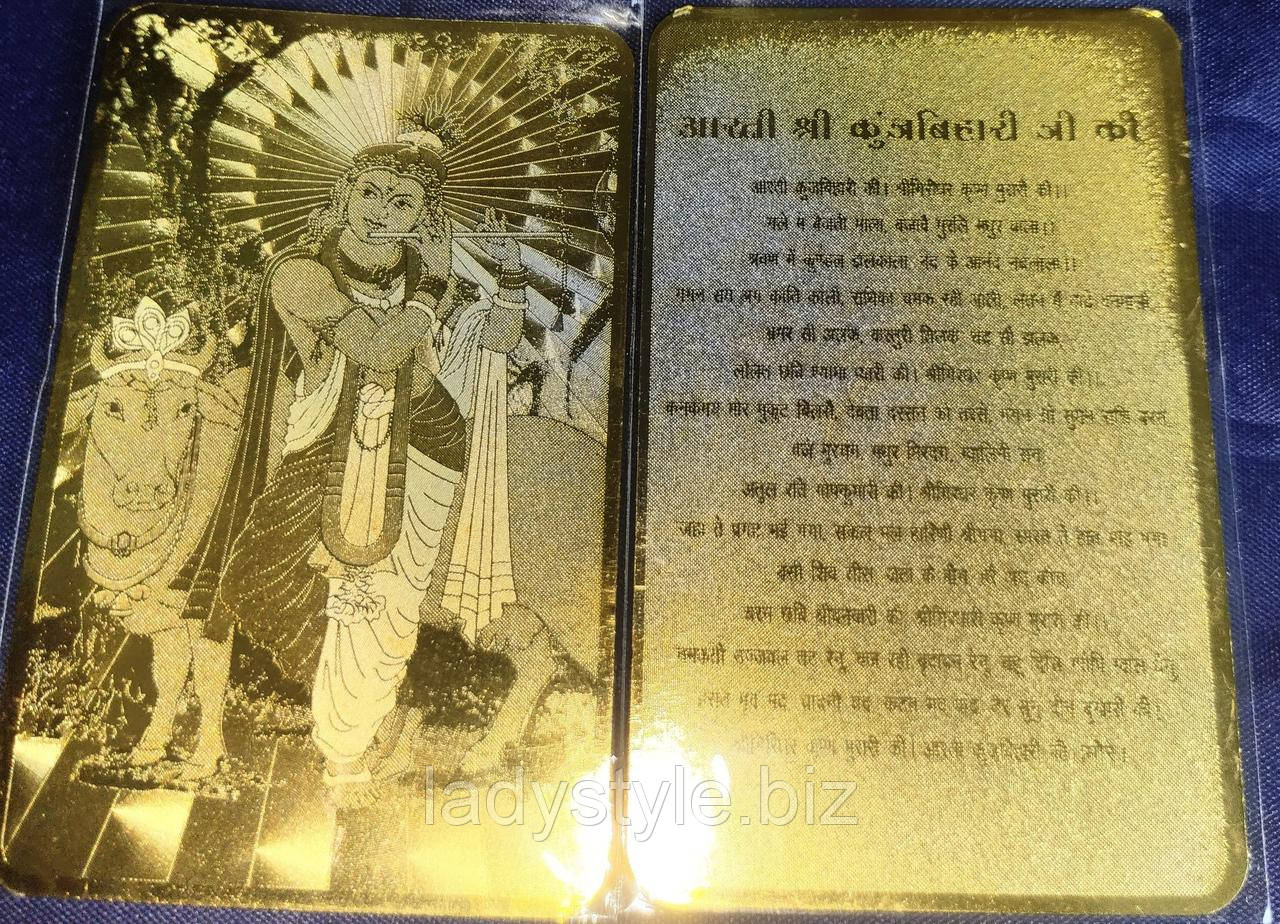 आरती श्री कुंजबिहारी जी की
आरती कुंजबिहारी की। श्रीगिरीधर कृष्ण मुरारी की।।
गले में बैजंती माला, बजावै मुरलि मधुर बाला।।
श्रवण में कुण्डल झलकाला, नंद के आनंद नंदलाला।।
गगन सम अंग कांति काली, राधिका चमक रही आली, लतन में ठाढ़े
भ्रमर सी अलक, कस्तुरी तिलक चंद्र सी झलक
ललित छवि श्यामा प्यारी की। श्रीगिरधर कृष्ण मुरारी की।।
कनकमय मोर मुकुट बिलसै, देवता दरसन को तरसे, गगन सों सुमन
बजे मुरचंग, मधुर मिरदंग, ग्वालिनी संग
अतुल रति गोपकुमारी की। श्रीगिरधर कृष्ण मुरारी की।।
जहां ते प्रगट भई गंगा, सकल मल हारिणी श्रीगंगा, स्मरन ते होत मोह भंग
बसी शिव सीस जटा के बीच
चरन छवि श्रीबनवारी की श्रीगिरधारी कृष्ण मुरारी की।।
चमकती उज्जवल तट रेनू, बज रही वृंदावन वेनू चहुं दिसि गोपि ग्वाल धेनु
हंसत मृदु मंद, चांदनी चंद कटत भव फंद टेर सुनु दीन दुखारी की।
श्रीगिरिधर कृष्ण मुरारी की। आरती कुंजबिहारी की
ladystyle.biz